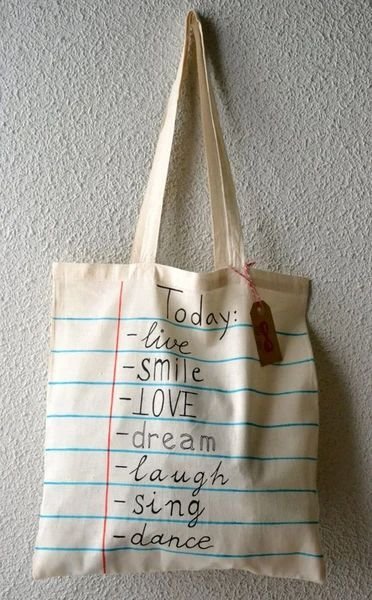 Today:
-live
-smile
-LOVE
-dream
-laugh
-sing
-dance